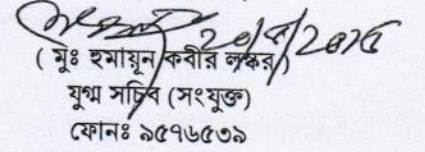 ২০/৫/২০১৫
( মুঃ হুমায়ূন কবীর লস্কর )
যুগ্ম সচিব (সংযুক্ত)
ফোনঃ ৯৫৭৬৫৩৯